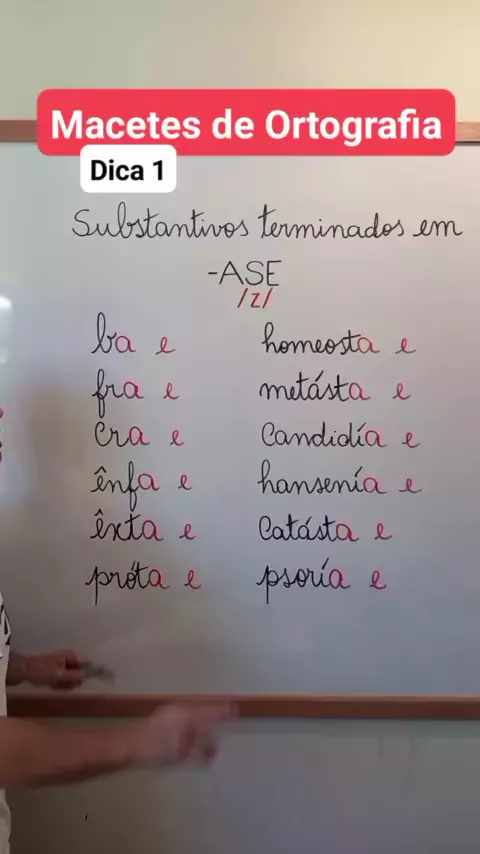 Macetes de Ortografia
Dica 1
Substantivos terminados em
-ASE
/z/
ba e homeosta e
fra e metásta e
cra e Candidía e
ênfa e hansenía e
êxta e Catásta e
próta e psoría e